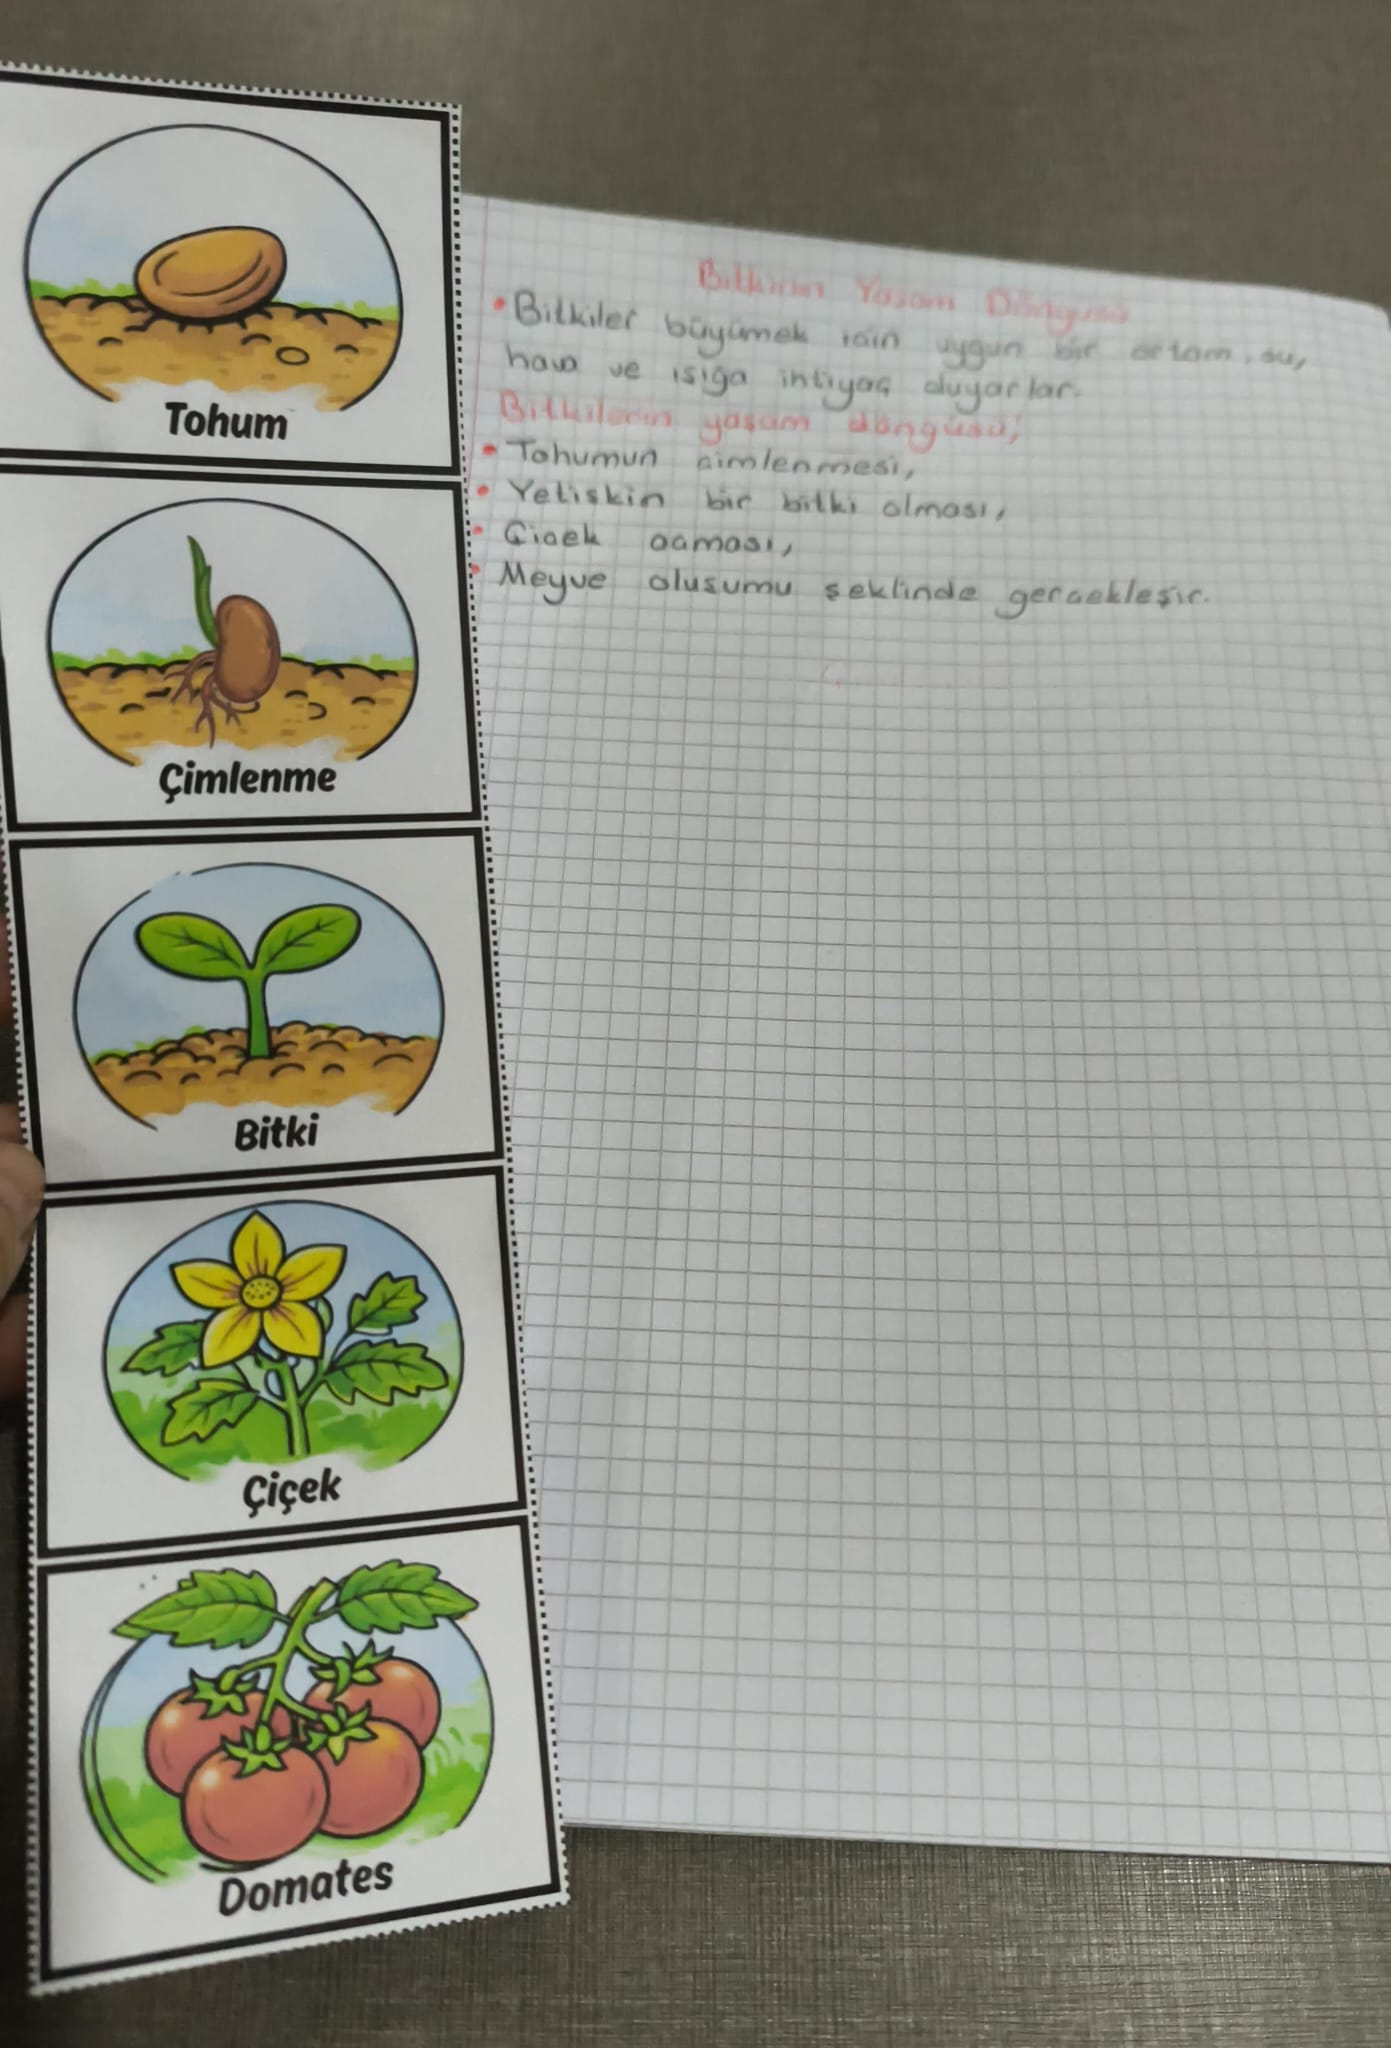 Tohum
Çimlenme
Bitki
Çiçek
Domates
Bitkinin Yaşam Döngüsü
• Bitkiler büyümek için uygun bir ortam, su,
hava ve ışığa ihtiyaç duyarlar.
Bitkilerin yaşam döngüsü;
• Tohumun çimlenmesi,
• Yetişkin bir bitki olması,
• Çiçek açması,
• Meyve oluşumu şeklinde gerçekleşir.